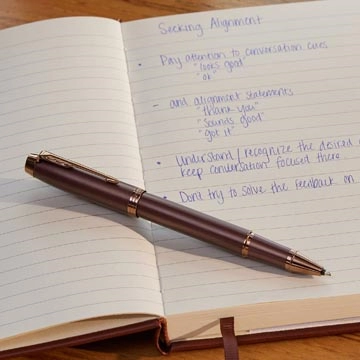 Seeking Alignment
• Pay attention to conversation cues
"looks good"
"ok"
– and alignment statements
"thank you"
"sounds good"
"got it"
• Understand / recognize the desired
keep conversation focused there
• Dont try to solve the feedback on